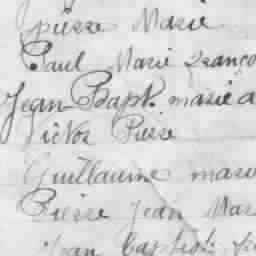 pierre Marie
Paul Marie franço
Jean Bapt. marie a
Victor Pierre
Guillaume marie
Pierre Jean Mar
Jean baptiste